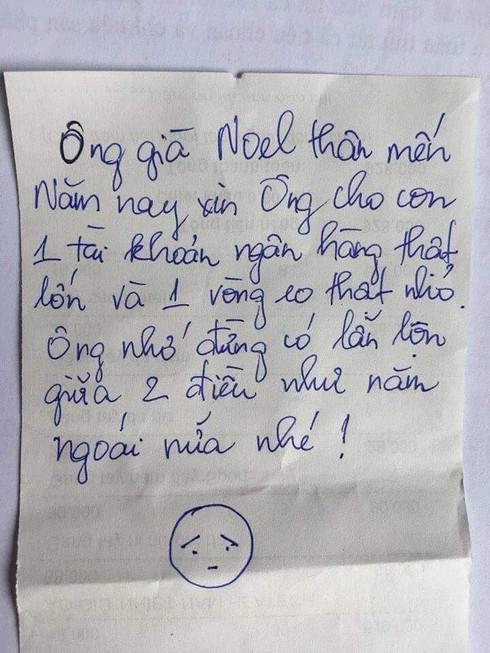 Ông già Noel thân mến
Năm nay xin Ông cho con
1 tài khoản ngân hàng thật
lớn và 1 vòng eo thật nhỏ.
Ông nhớ đừng có lẫn lộn
giữa 2 điều như năm
ngoái nữa nhé !